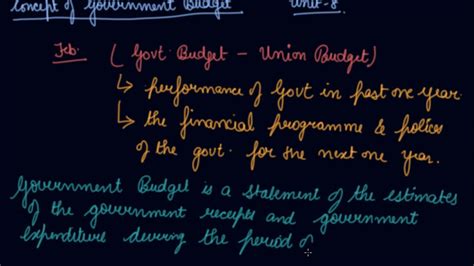 Concept of Government Budget Unit-8.
Feb. (Govt Budget - Union Budget)
↳ performance of Govt in past one year.
↳ the financial programme & polices
of the govt. for the next one year.
Government Budget is a statement of the estimates
of the government receipts and government
expenditure during the period of